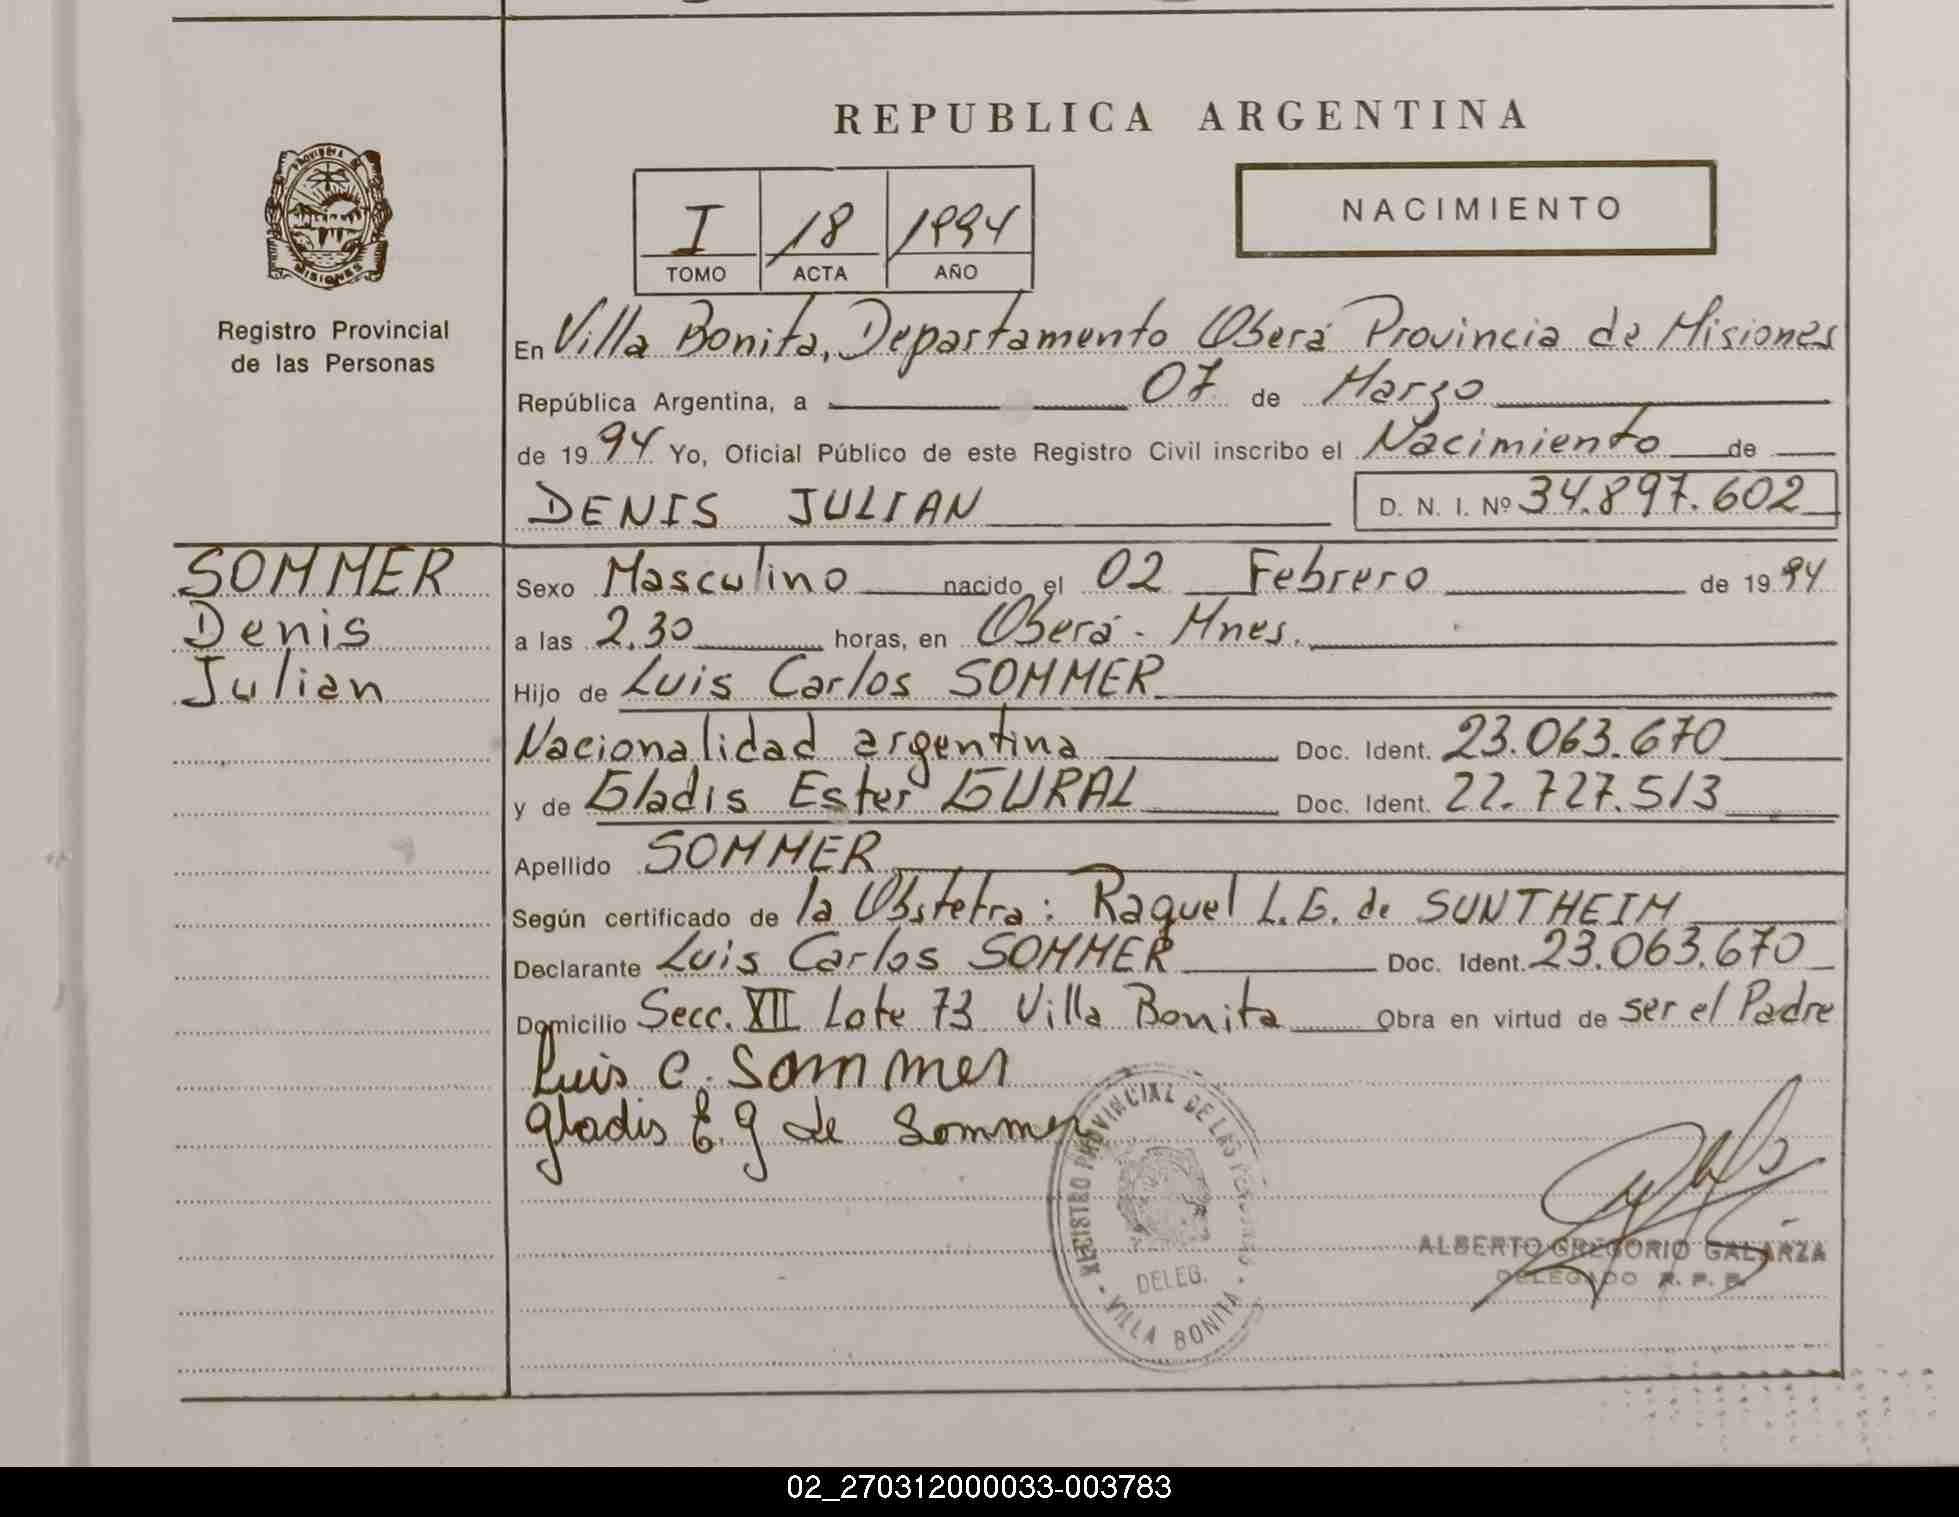 REPUBLICA ARGENTINA
PROVINCIA DE
MISIONES
Registro Provincial
de las Personas
I 18 1994
TOMO ACTA AÑO
NACIMIENTO
En Villa Bonita, Departamento Oberá Provincia de Misiones
República Argentina, a 07 de Marzo
de 1994 Yo, Oficial Público de este Registro Civil inscribo el Nacimiento de
DENIS JULIAN D. N. I. Nº 34.897.602
SOMMER
Denis
Julian
Sexo Masculino nacido el 02 Febrero de 1994
a las 2.30 horas, en Oberá - Mnes.
Hijo de Luis Carlos SOMMER
Nacionalidad argentina Doc. Ident. 23.063.670
y de Gladis Ester GURAL Doc. Ident. 22.727.513
Apellido SOMMER
Según certificado de la Obstetra: Raquel L. G. de SUNTHEIM
Declarante Luis Carlos SOMMER Doc. Ident. 23.063.670
Domicilio Secc. XII Lote 73 Villa Bonita Obra en virtud de ser el Padre
Luis C. Sommer
Gladis E. g de Sommer
REGISTRO PROVINCIAL DE LAS PERSONAS
DELEG.
VILLA BONITA
ALBERTO GREGORIO GALARZA
DELEGADO R. P. P.
02_270312000033-003783